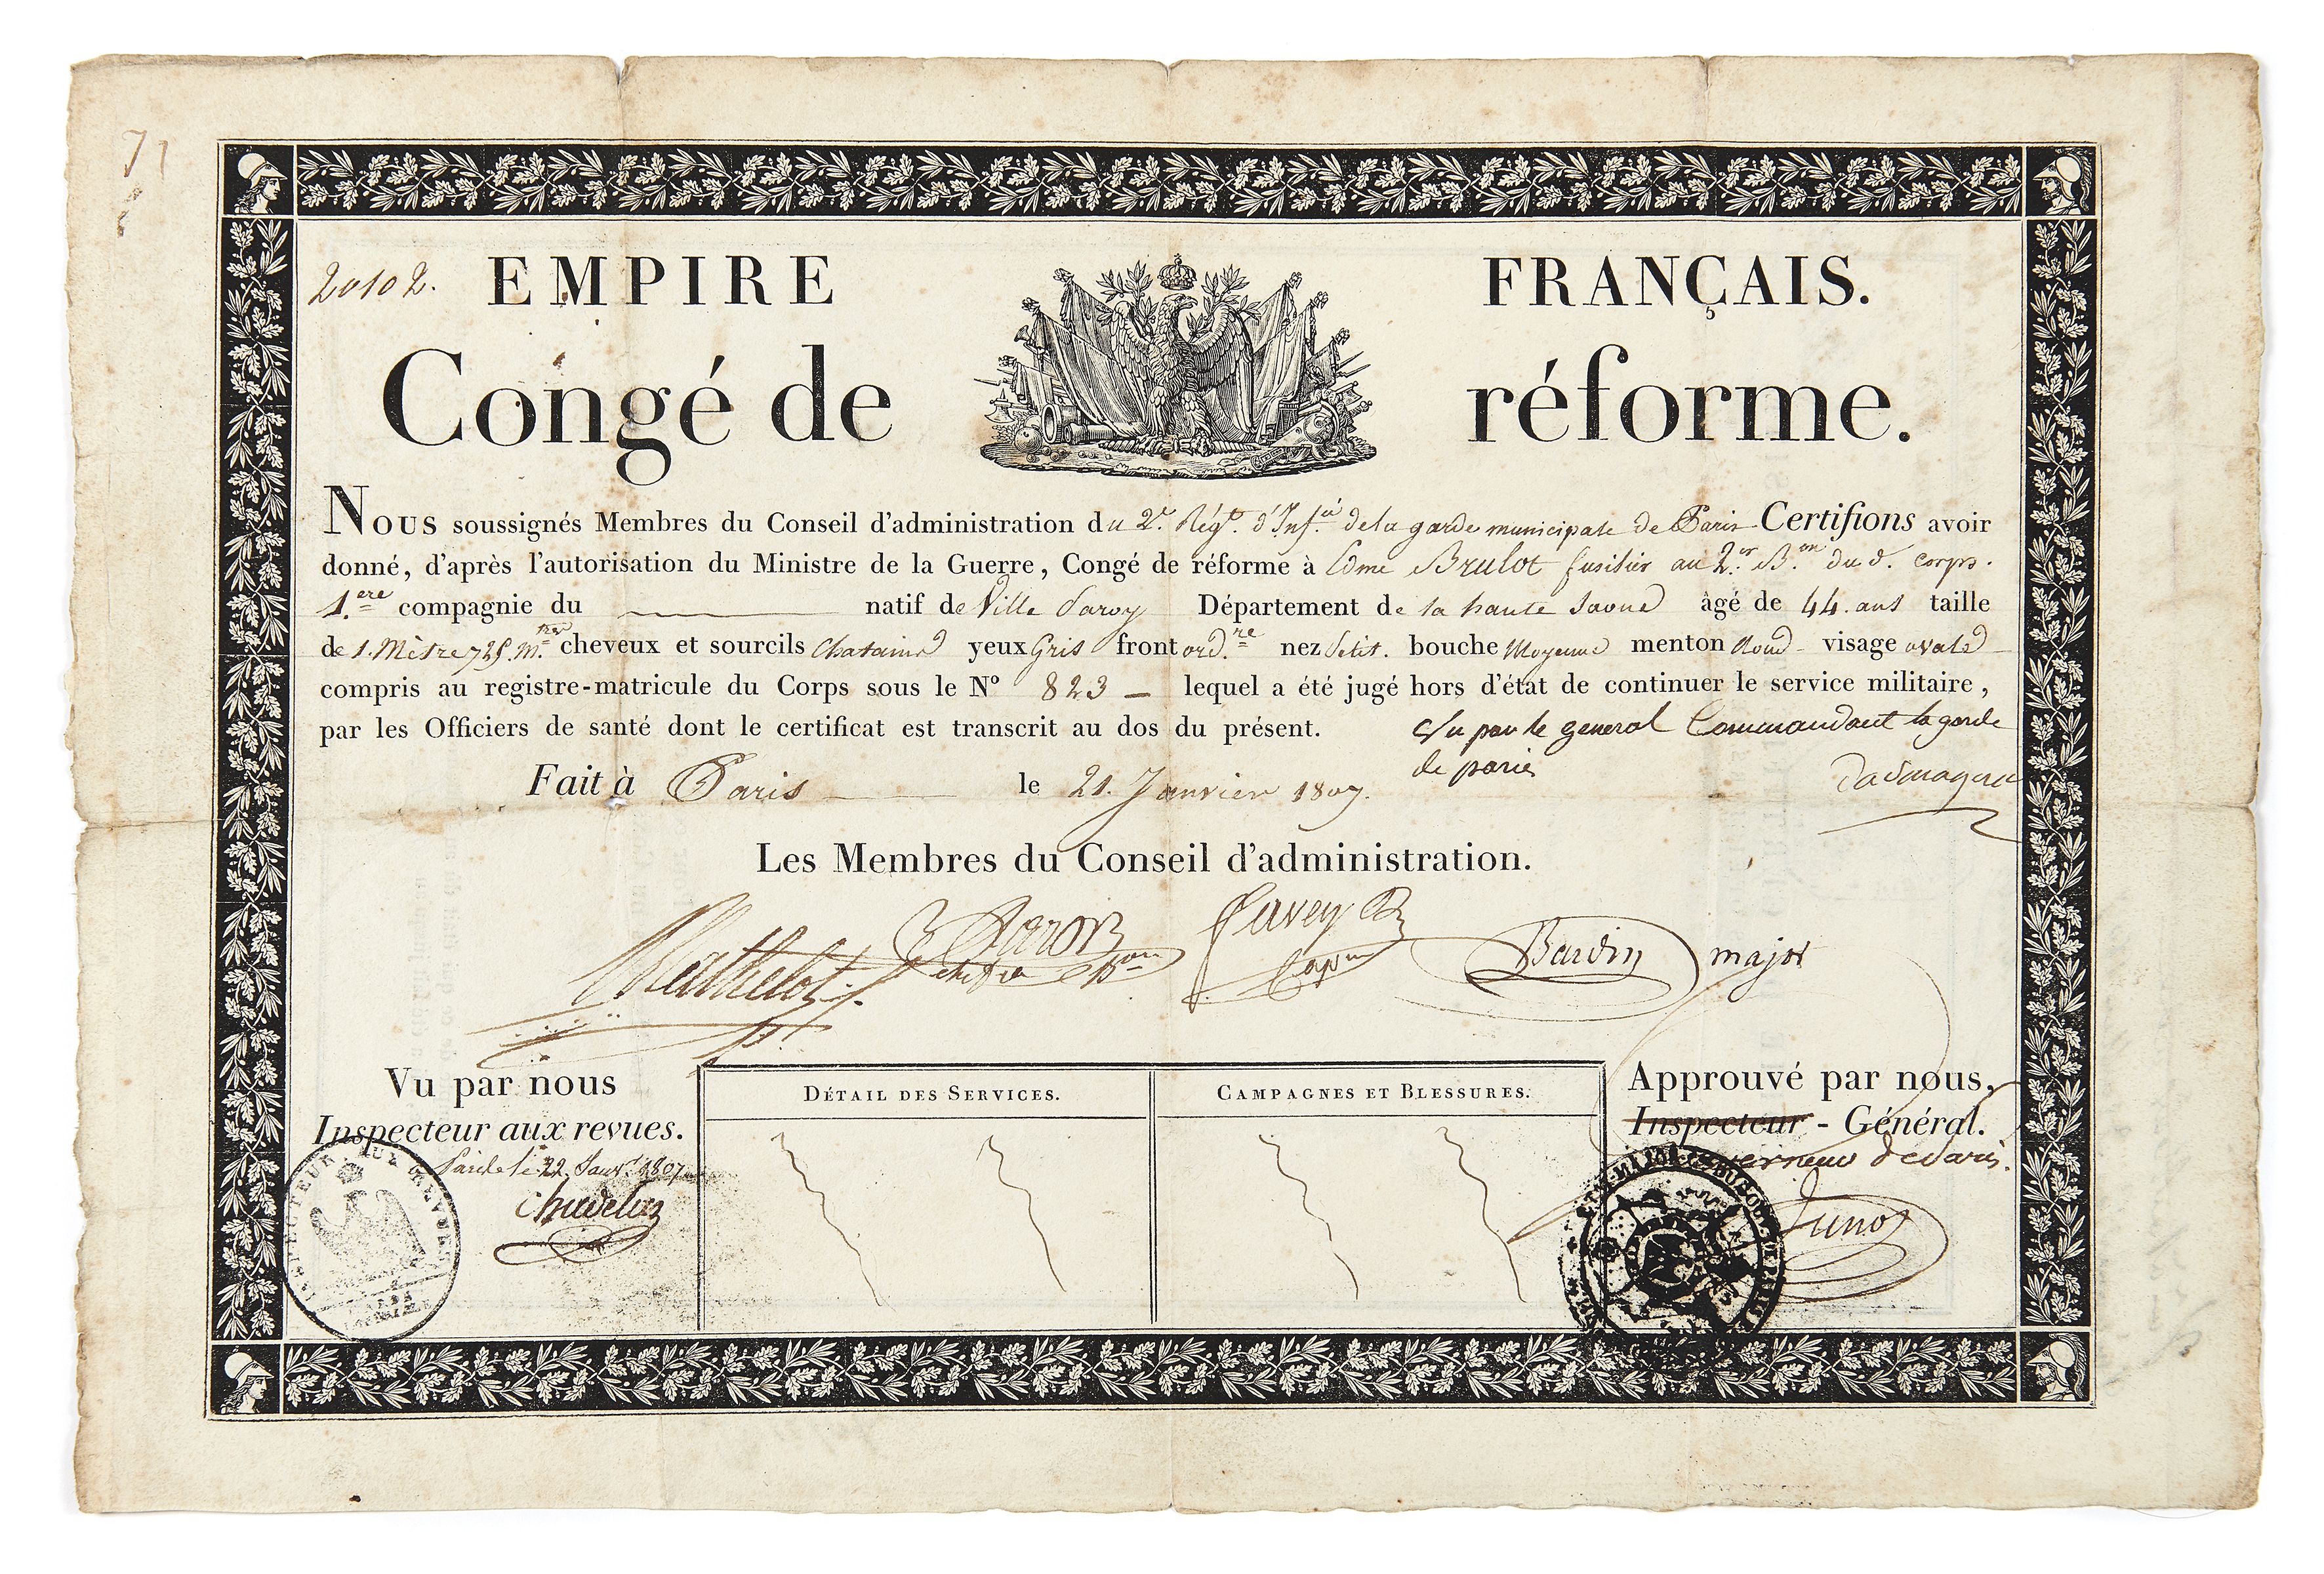 71
20102. EMPIRE FRANÇAIS.
Congé de réforme.
Nous soussignés Membres du Conseil d'administration du 2.e Régt. d'Inf.ie de la garde municipale de Paris Certifions avoir
donné, d'après l'autorisation du Ministre de la Guerre, Congé de réforme à Edme Brulot fusilier au 2.e B.on du d. corps.
1.ere compagnie du natif de Ville Paroy Département de la haute Saone âgé de 44. ans taille
de 1. Mètre 725 m. cheveux et sourcils Chatains yeux Gris front ord.re nez Petit. bouche Moyenne menton Rond visage ovale
compris au registre-matricule du Corps sous le No 823 lequel a été jugé hors d'état de continuer le service militaire,
par les Officiers de santé dont le certificat est transcrit au dos du présent.
Vu par le general Commandant la garde
de paris
Fait à Paris le 21. Janvier 1807.
Les Membres du Conseil d'administration.
Barthelot
chef de B.on
Favey
Cap.ne
Bardin major
Vu par nous
Inspecteur aux revues.
Paris le 22 Janv.r 1807
INSPECTEUR AUX REVUES
DÉTAIL DES SERVICES.
CAMPAGNES ET BLESSURES.
Approuvé par nous,
Inspecteur - Général.
Gouverneur de Paris.
Junot